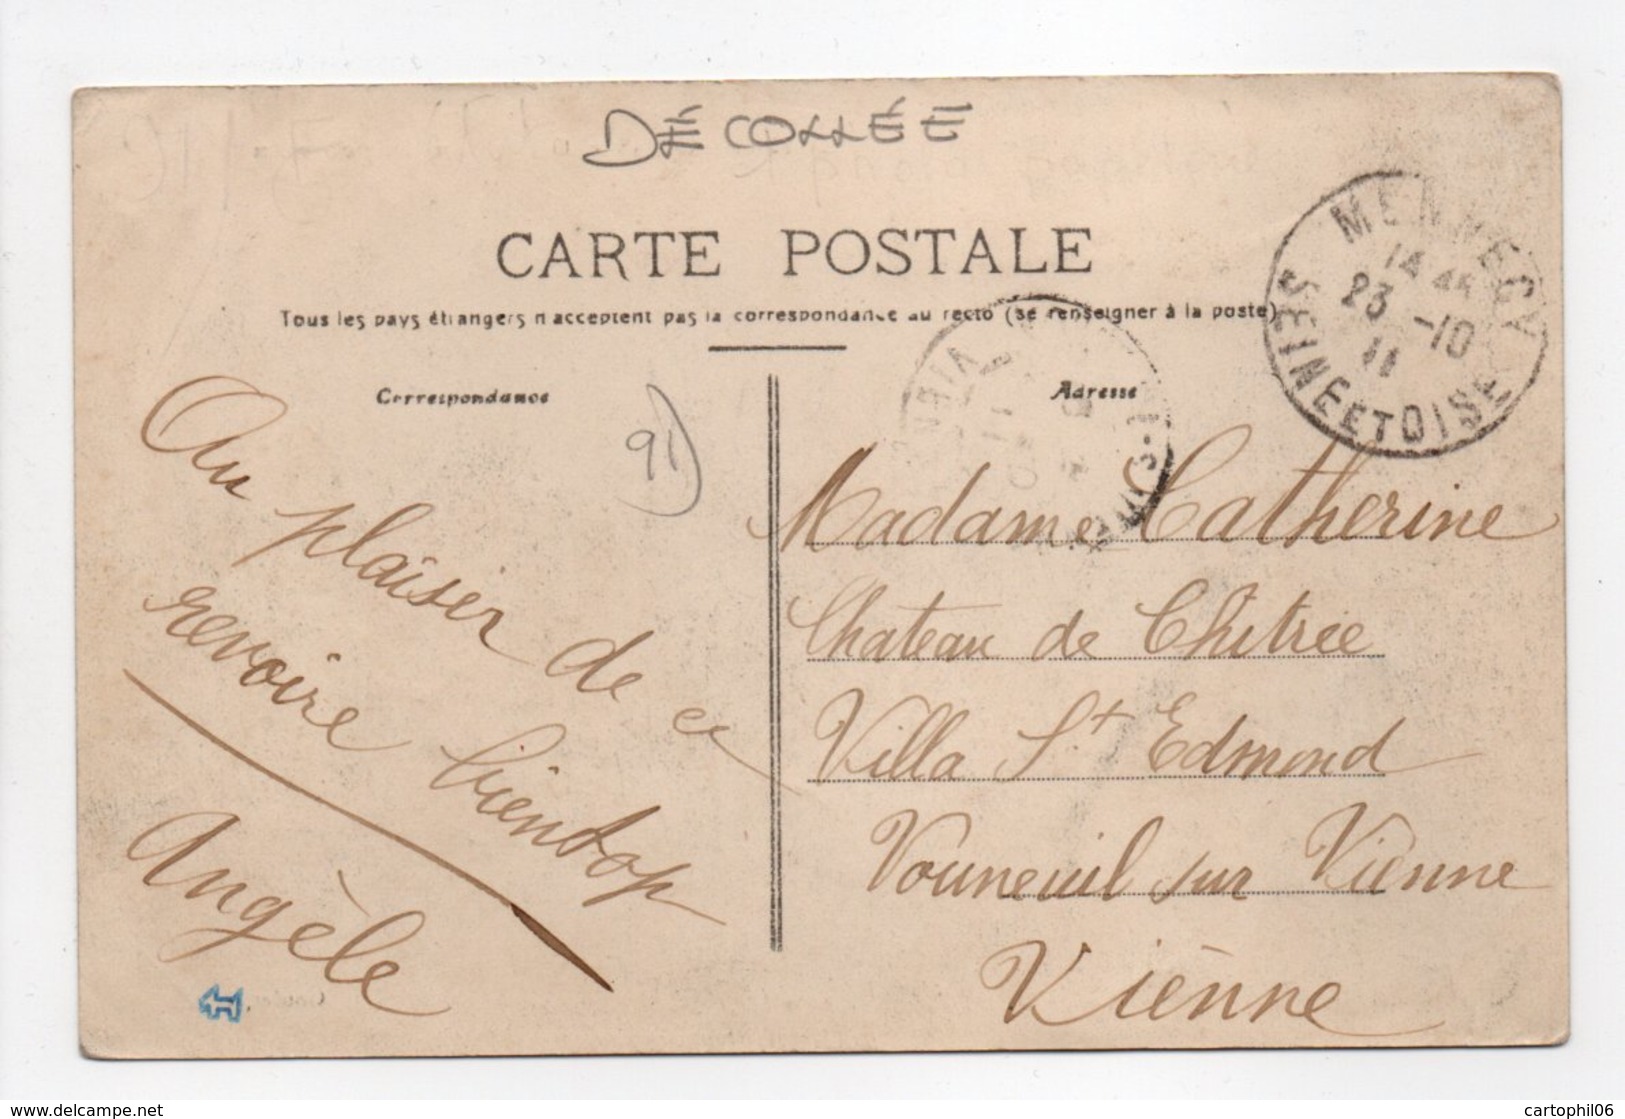 DÉCOLLÉE
CARTE POSTALE
Tous les pays étrangers n'acceptent pas la correspondance au recto (se renseigner à la poste)
Correspondance
Adresse
MENNECY
14 45
23 -10
11
SEINE ET OISE
91
Au plaisir de ce
revoire bientop
Angèle
Madame Catherine
Chateau de Chitrée
Villa St Edmond
Vouneuil sur Vienne
Viènne
www.delcampe.net
cartophil06